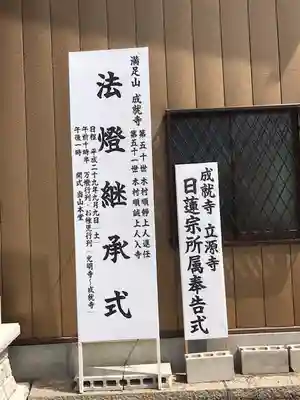 満足山 成就寺
第五十世 木村順静上人退任
第五十一世 木村順誠上人入寺
法燈継承式
日程 平成二十九年九月九日(土)
午前十時半 万燈行列・お稚児行列(光明寺~成就寺)
午後一時 開式 當山本堂
成就寺 立源寺
日蓮宗所属奉告式